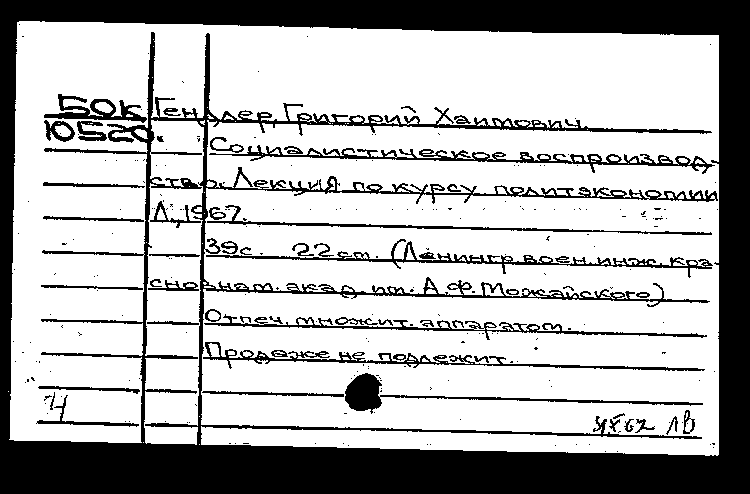 БОК Гендлер, Григорий Хаимович.
10520. Социалистическое воспроизвод-
ство. Лекция по курсу политэкономии
Л., 1967.
39с. 22 см. (Ленингр. воен. инж. кра-
снознам. акад. им. А.Ф. Можайского)
Отпеч. множит. аппаратом.
Продаже не подлежит.
Ч
67 ЛВ